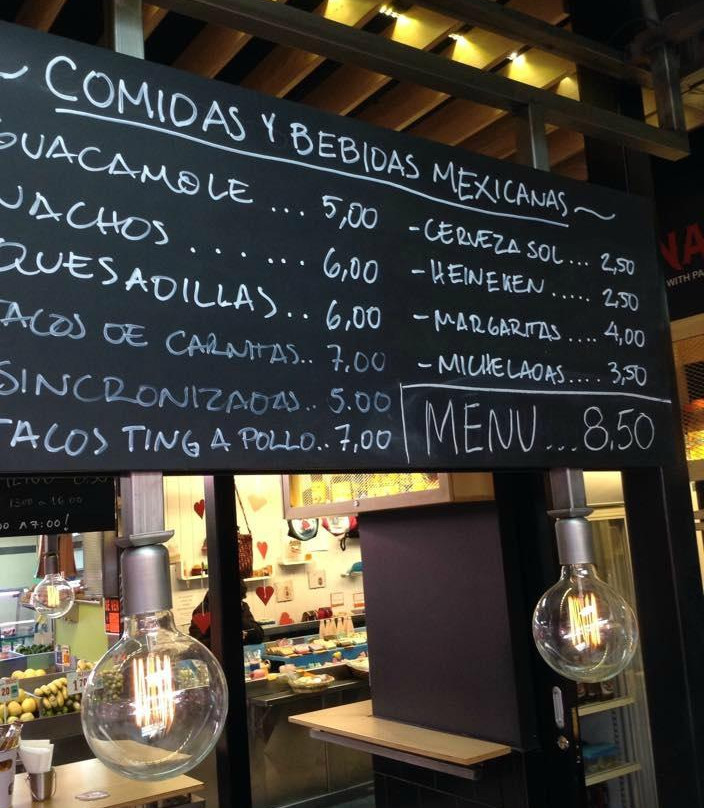 ~ COMIDAS Y BEBIDAS MEXICANAS ~
GUACAMOLE ... 5,00
NACHOS ...... 6,00
QUESADILLAS.. 6,00
TACOS DE CARNITAS.. 7,00
SINCRONIZADAS.. 5.00
TACOS TING A POLLO.. 7,00
-CERVEZA SOL... 2,50
-HEINEKEN ..... 2,50
-MARGARITAS .... 4,00
-MICHELADAS.... 3,50
MENU... 8,50
A 7:00!
20
WITH PA